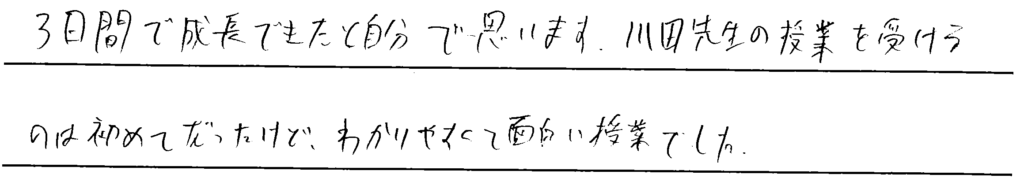 3日間で成長できたと自分で思います。川田先生の授業を受ける
のは初めてだったけど、わかりやすくて面白い授業でした。